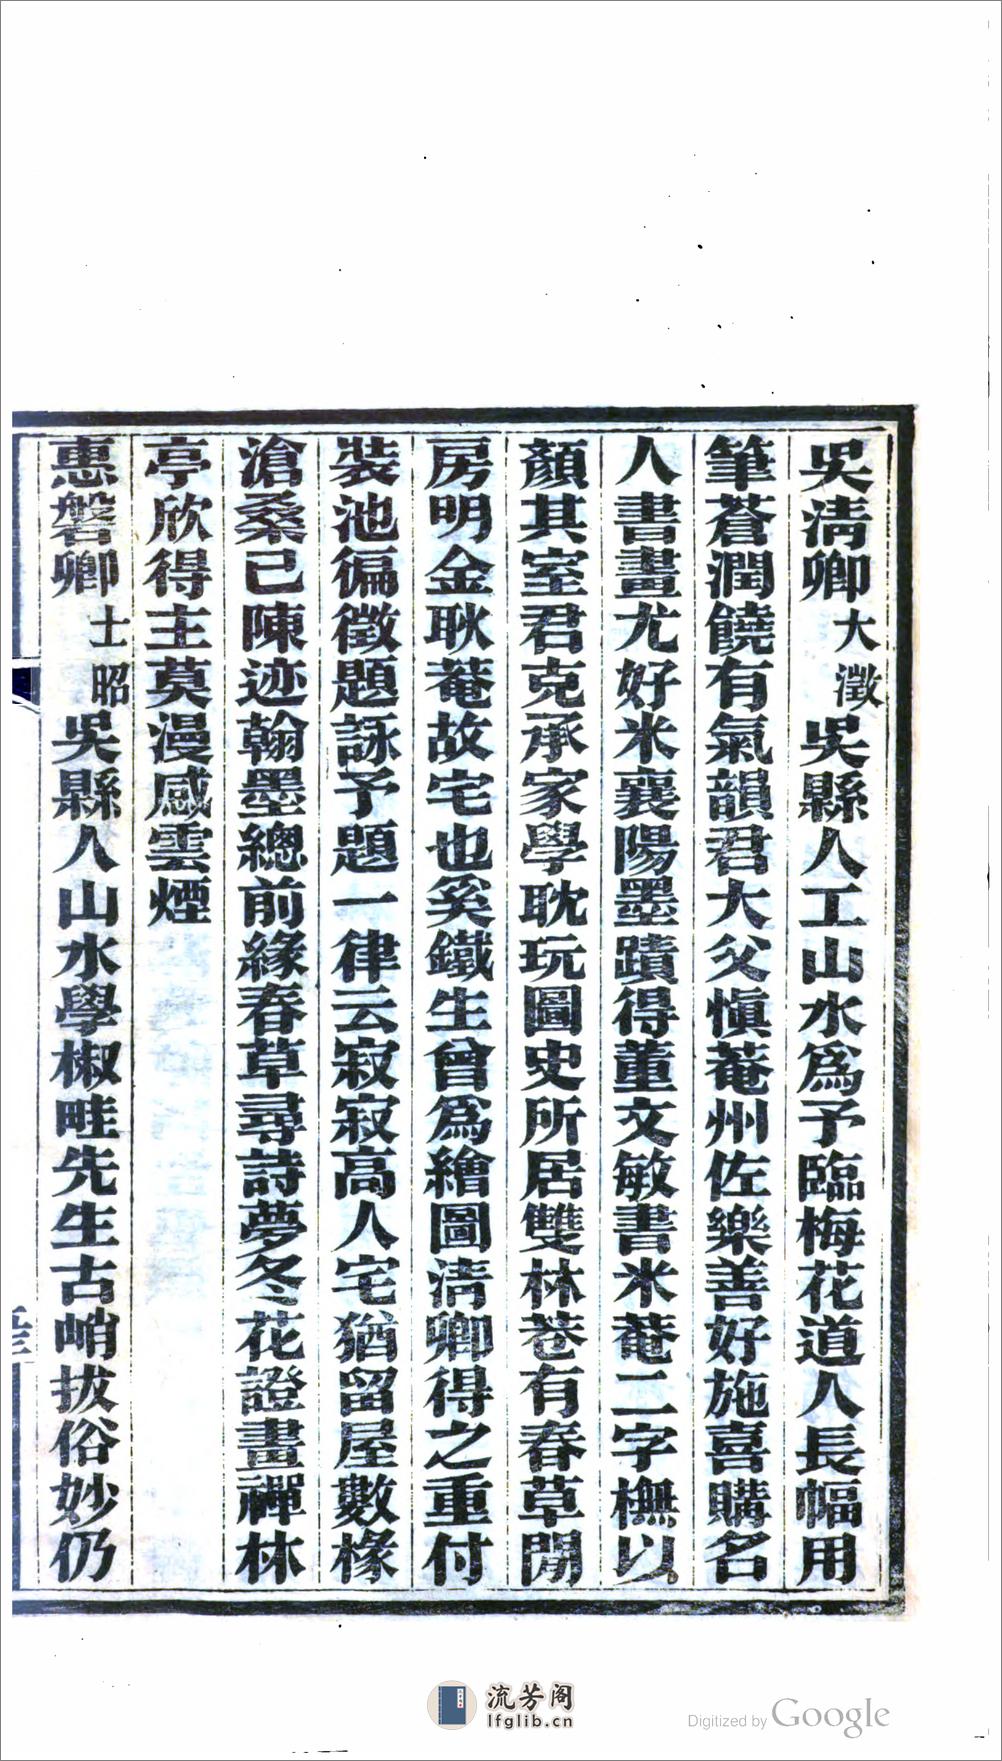 吳淸卿大澂吳縣人工山水爲予臨梅花道人長幅用
筆蒼潤饒有氣韻君大父愼菴州佐樂善好施喜購名
人書畫尤好米襄陽墨蹟得董文敏書米菴二字橅以
顏其室君克承家學耽玩圖史所居雙林巷有春草閒
房明金耿菴故宅也奚鐵生曾爲繪圖淸卿得之重付
裝池徧徵題詠予題一律云寂寂高人宅猶留屋數椽
滄桑已陳迹翰墨總前緣春草尋詩夢冬花證畫禪林
亭欣得主莫漫感雲煙
惠磐卿士昭吳縣人山水學椒畦先生古峭拔俗妙仍
流芳阁
lfglib.cn
Digitized by Google